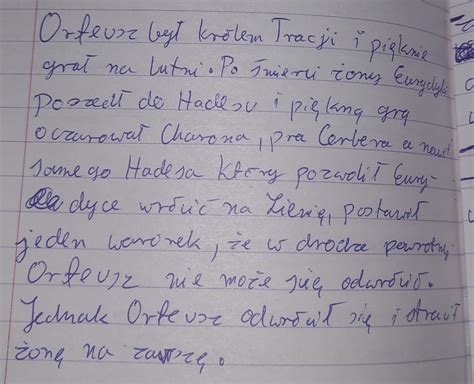 Orfeusz był królem Tracji i pięknie
grał na lutni. Po śmierci żony Eurydyki
poszedł do Hadesu i piękną grą
oczarował Charona, psa Cerbera a nawet
samego Hadesa który pozwolił Eury-
dyce wrócić na Ziemię, postawił
jeden warunek, że w drodze powrotnej
Orfeusz nie może się odwrócić.
Jednak Orfeusz odwrócił się i stracił
żonę na zawszę.